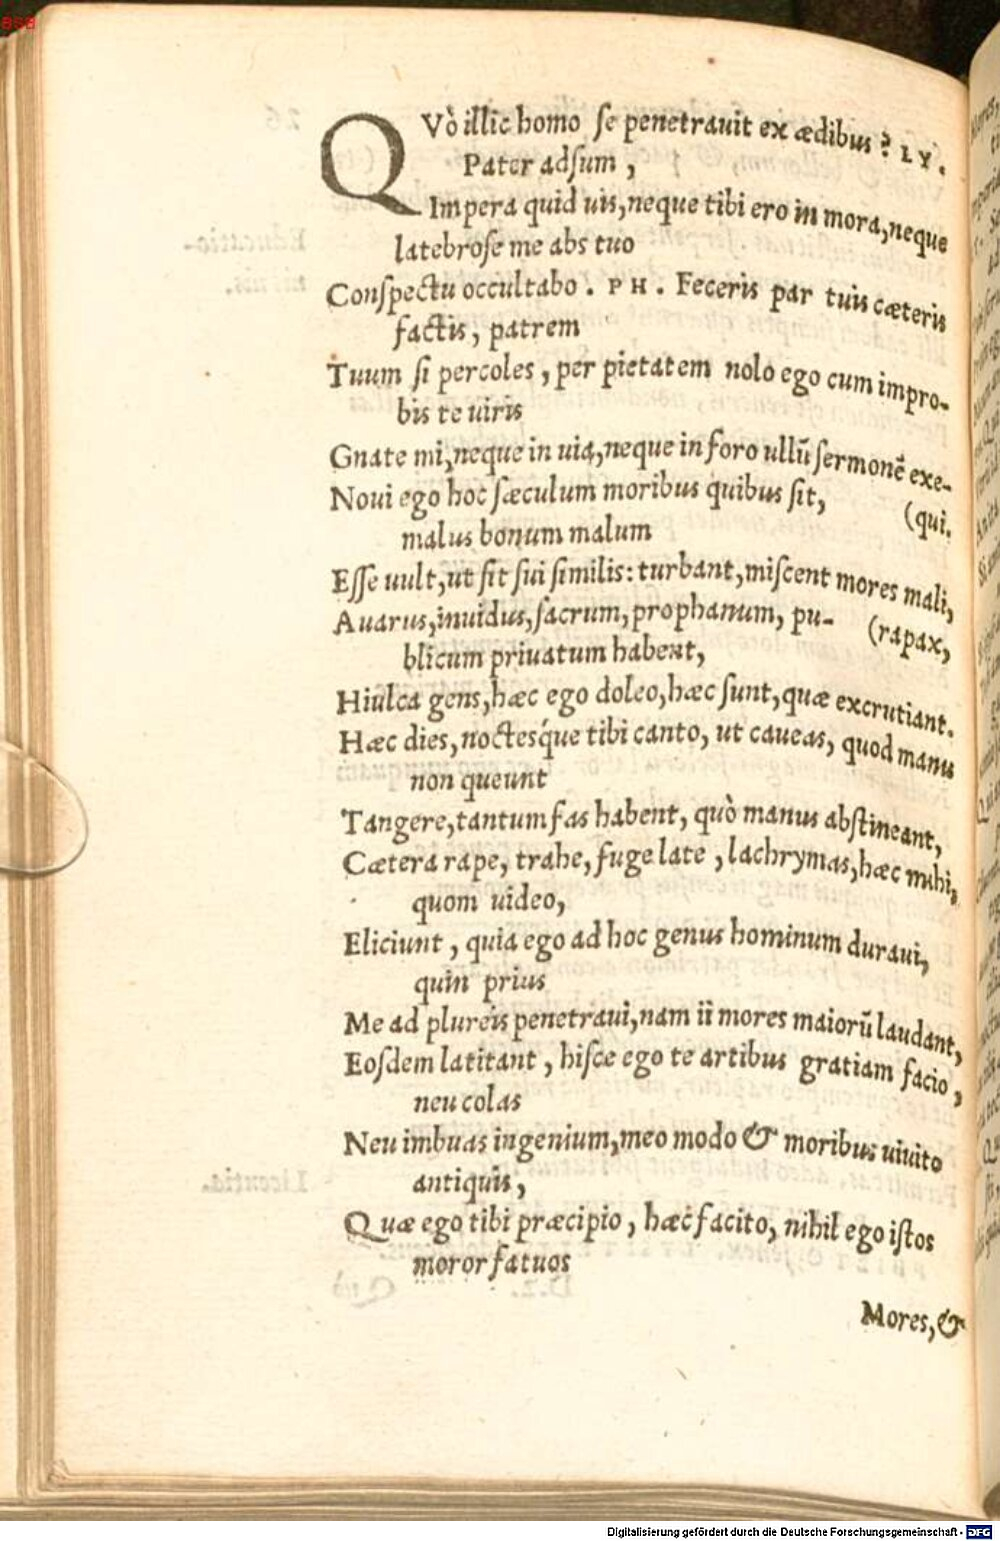 QVò illic homo se penetrauit ex ædibus? LY.
Pater adsum,
Impera quid uis, neque tibi ero in mora, neque
latebrose me abs tuo
Conspectu occultabo. PH. Feceris par tuis cæteris
factis, patrem
Tuum si percoles, per pietatem nolo ego cum impro-
bis te uiris
Gnate mi, neque in uia, neque in foro ullū sermonē exe-
Noui ego hoc sæculum moribus quibus sit, (qui.
malus bonum malum
Esse uult, ut sit sui similis: turbant, miscent mores mali,
Auarus, inuidus, sacrum, prophanum, pu- (rapax,
blicum priuatum habent,
Hiulca gens, hæc ego doleo, hæc sunt, quæ excrutiant.
Hæc dies, noctesq́ue tibi canto, ut caueas, quod manu
non queunt
Tangere, tantum fas habent, quò manus abstineant,
Cætera rape, trahe, fuge late, lachrymas, hæc mihi,
quom uideo,
Eliciunt, quia ego ad hoc genus hominum duraui,
quin prius
Me ad plureis penetraui, nam ii mores maiorū laudant,
Eosdem latitant, hisce ego te artibus gratiam facio,
neu colas
Neu imbuas ingenium, meo modo & moribus uiuito
antiquis,
Quæ ego tibi præcipio, hæc facito, nihil ego istos
moror fatuos
Mores, &
Digitalisierung gefördert durch die Deutsche Forschungsgemeinschaft - DFG